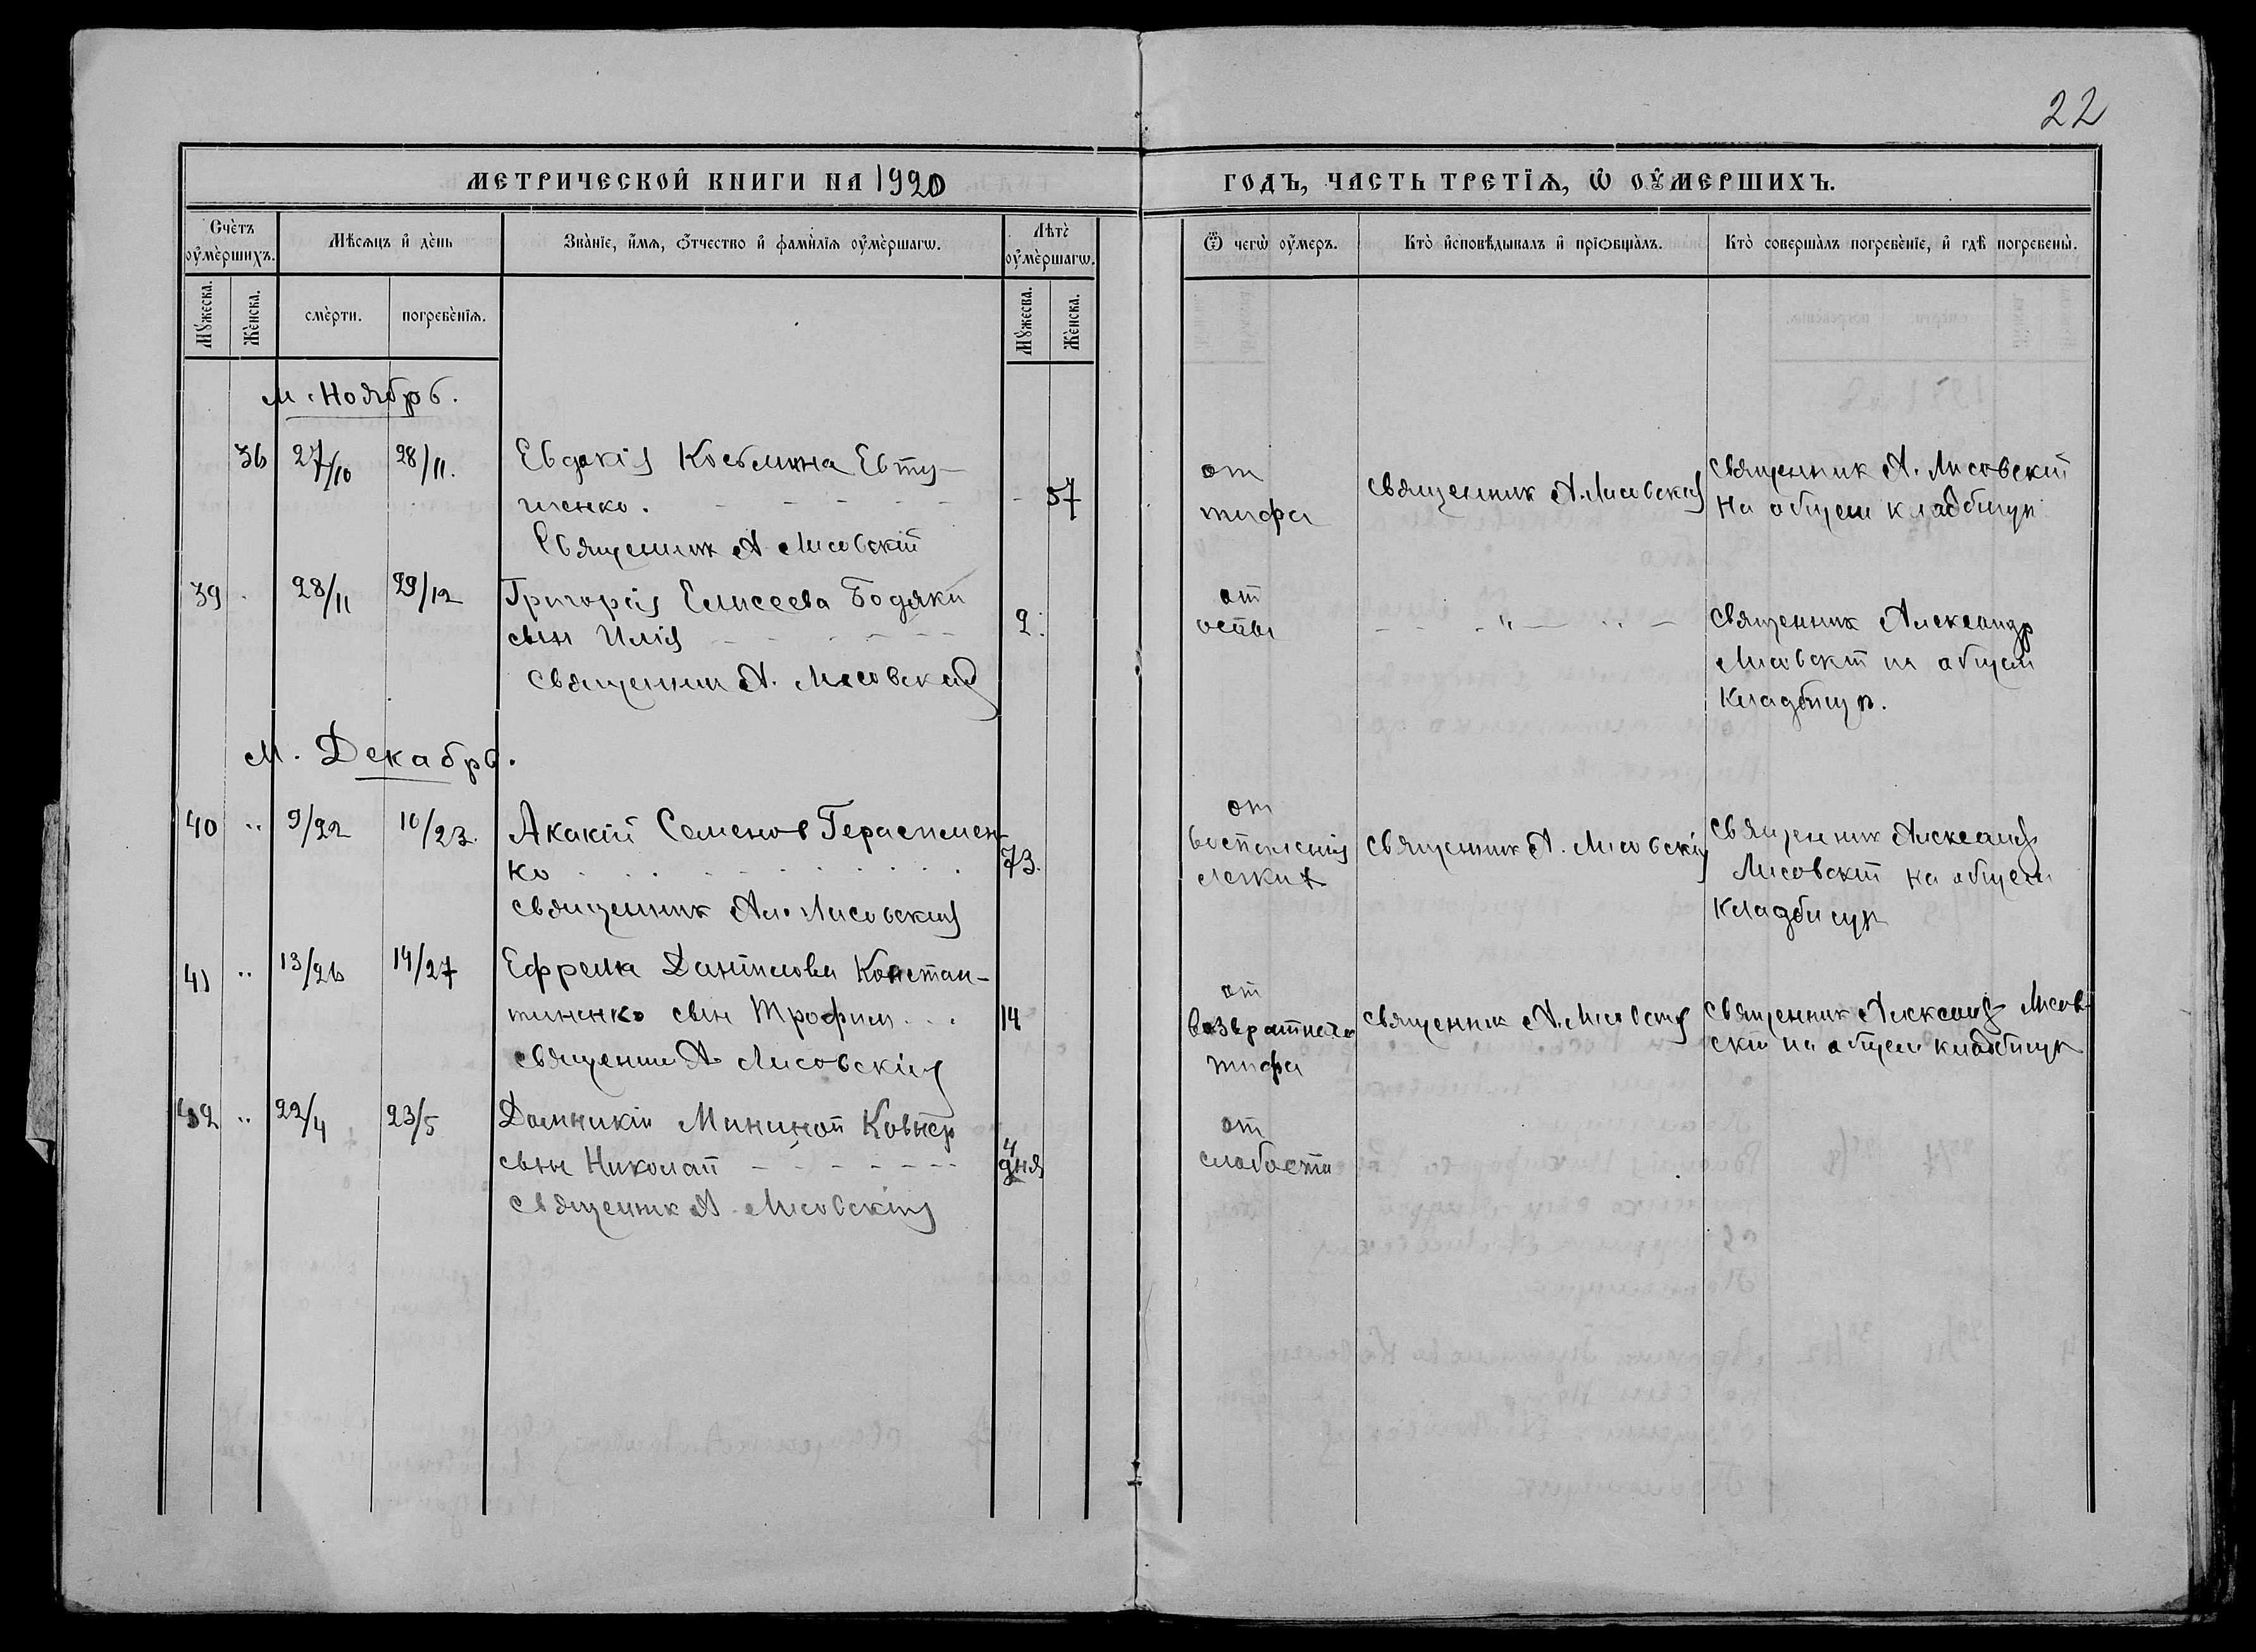 22
МЕТРИЧЕСКОЙ КНИГИ НА 1920
ГОДЪ, ЧАСТЬ ТРЕТІѦ, Ѡ ОУМЕРШИХЪ.
Счетъ оумершихъ.
Мѣсяцъ и день
Званіе, имя, отчество и фамиліѧ оумершагѡ.
Лѣта оумершагѡ.
Ѿ чегѡ оумеръ.
Кто исповѣдывалъ и пріобщалъ.
Кто совершалъ погребеніе, и гдѣ погребены.
Мужеска.
Женска.
смерти.
погребеніѧ.
Мужеска.
Женска.
м. Ноябрь.
36 27/10 28/11. Евдокія Косьмина Евту-
шенко. 57
Священник А Лисовскій
от
тифа
священник А. Лисовскій
священник А. Лисовскій
на общем кладбищѣ
39 28/11 29/12 Григорія Елисеева Бодяки
сын Илія 2.
священник А. Лисовскій
от
оспы
священник Александр
Лисовскій на общем
кладбищѣ.
М. Декабрь.
40 " 9/22 10/23. Акакій Семенов Герасимен-
ко 73.
священник Ал. Лисовскій
от
воспаленія
легких
священник А. Лисовскій
священник Александр
Лисовскій на общем
кладбищѣ
41 " 13/26 14/27 Ефрема Даніилова Констан-
тиненко сын Трофим 14
священник А Лисовскій
от
возвратнаго
тифа
священник А. Лисовскій
священник Александр Лисов-
скій на общем кладбищѣ
42 " 22/4 23/5 Домникіи Мининой Ковнер
сын Николай 4 дня
священник А. Лисовскій
от
слабости